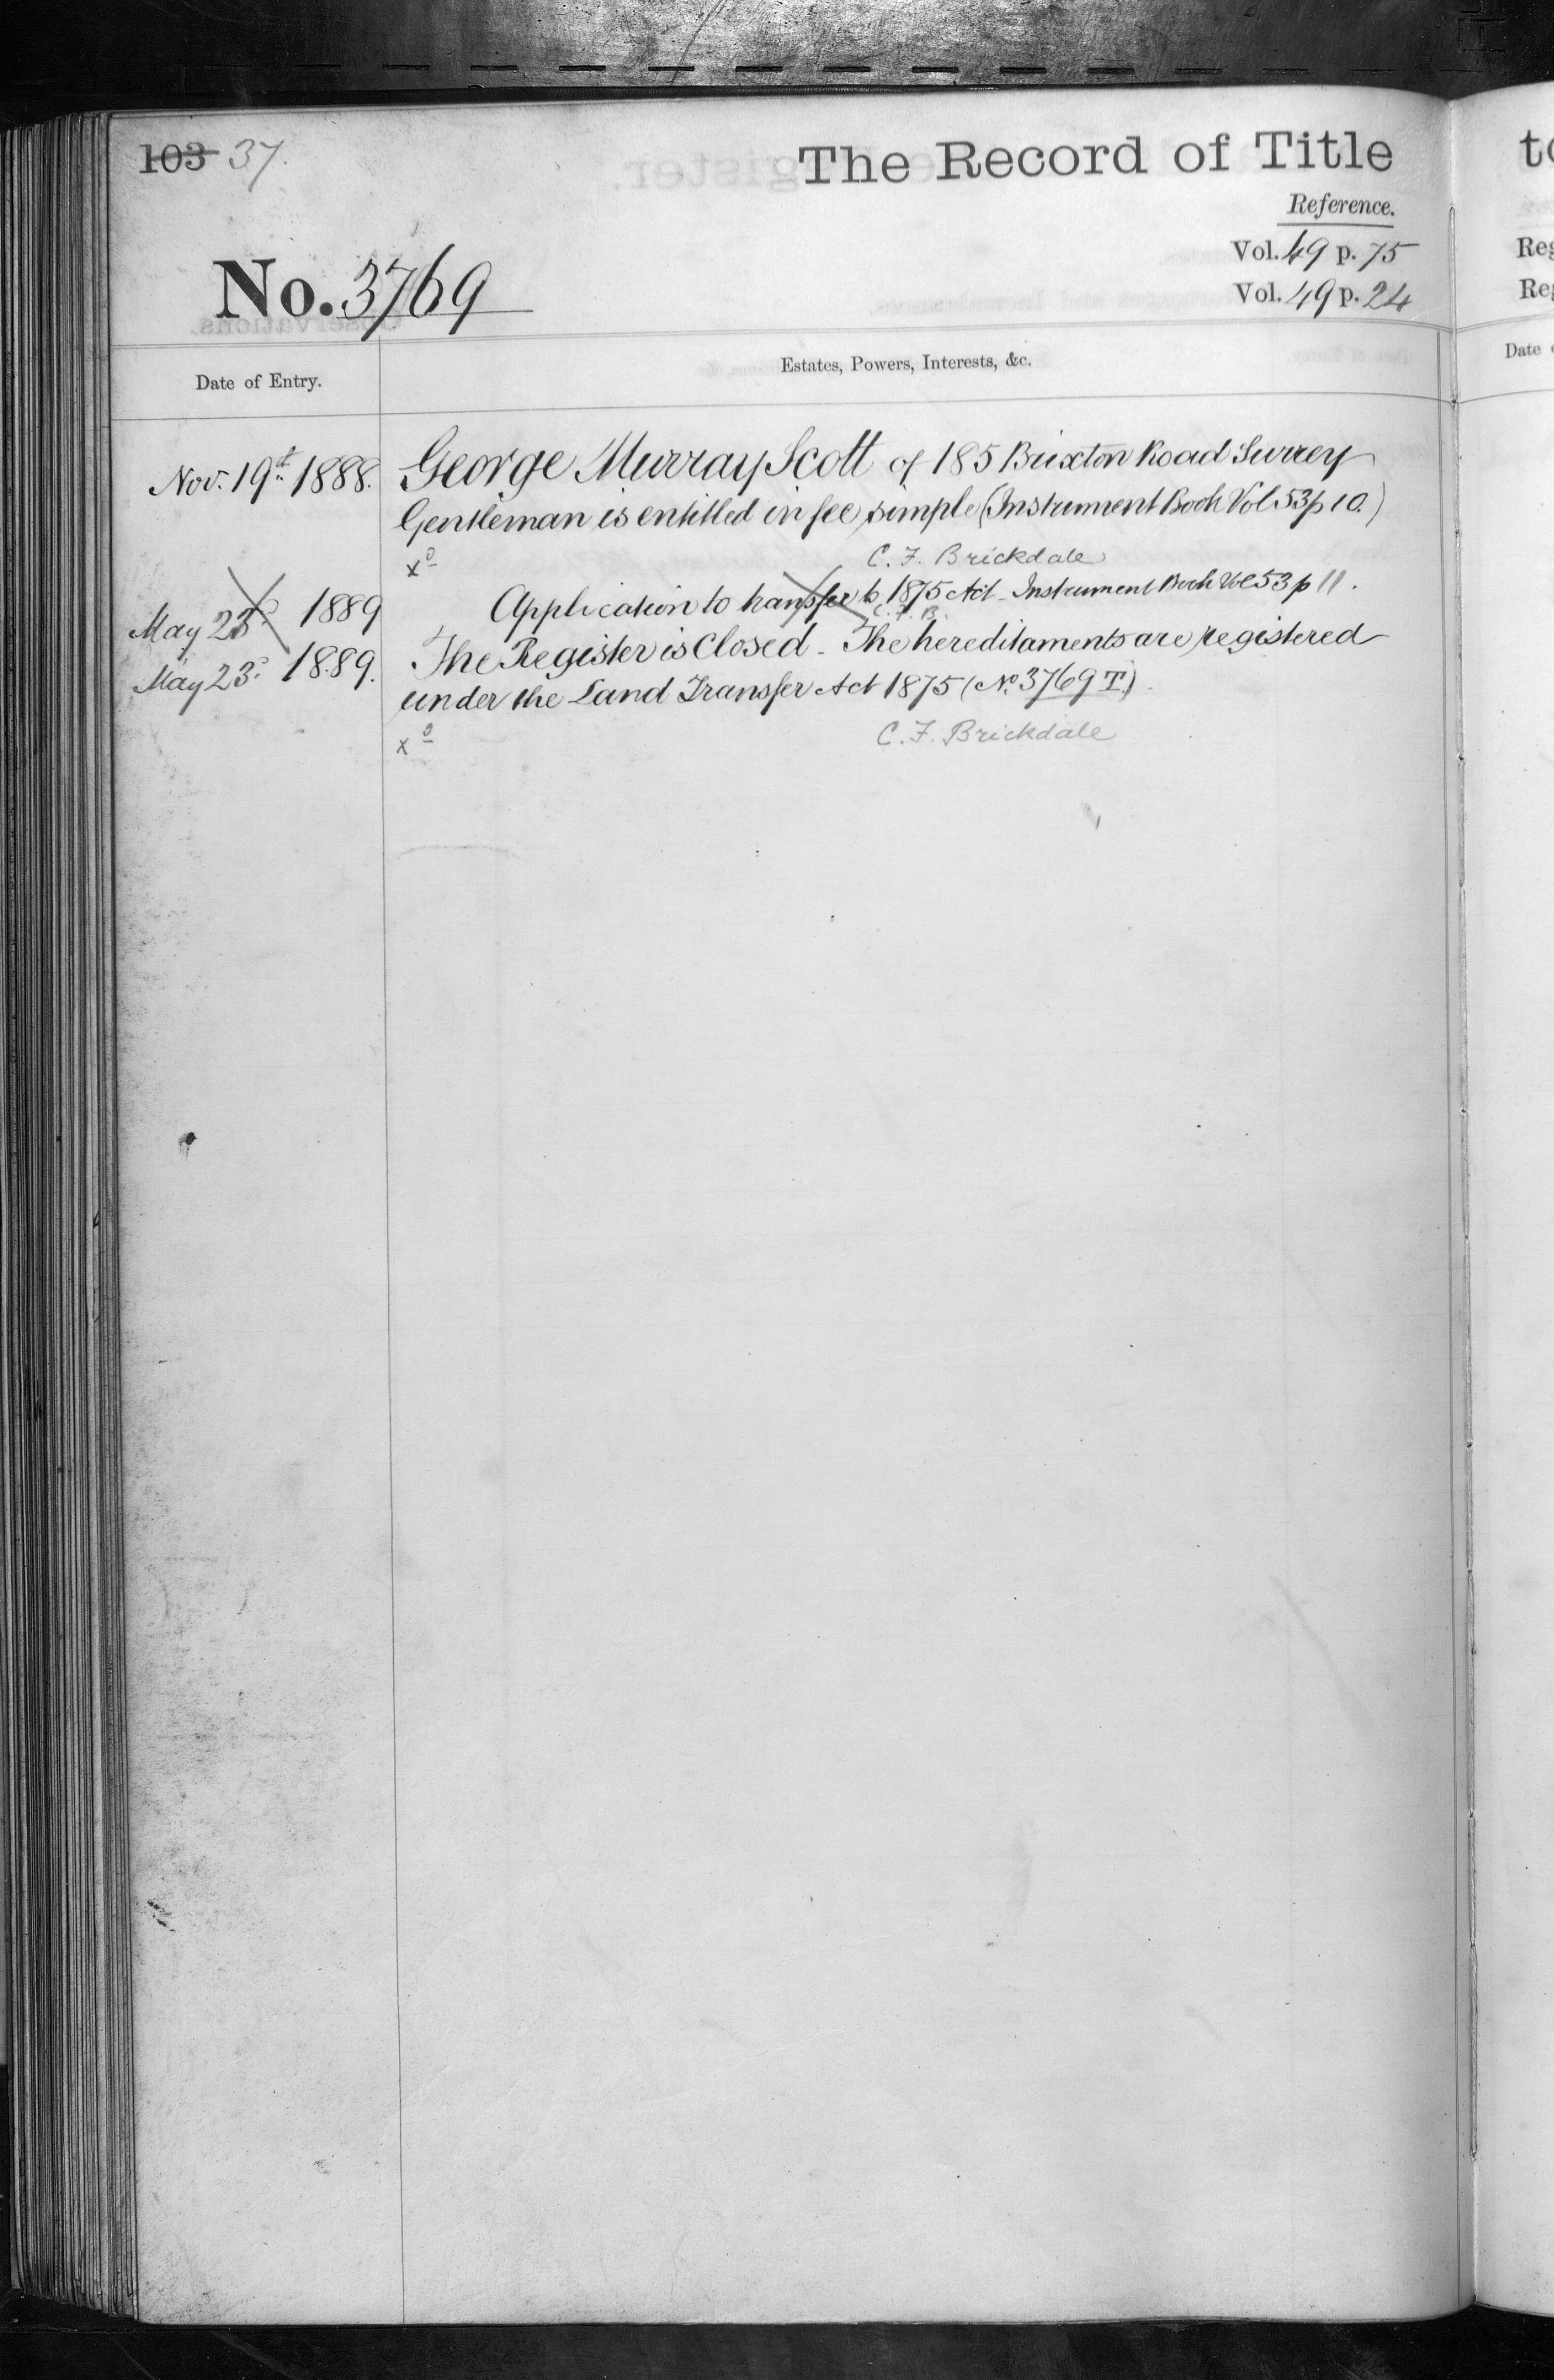 103 37.
The Record of Title
Reference.
Vol. 49 p. 75
Vol. 49 p. 24
No. 3769
Date of Entry.
Estates, Powers, Interests, &c.
Nov. 19th 1888. George Murray Scott of 185 Brixton Road Surrey
Gentleman is entitled in fee simple (Instrument Book Vol 53 p 10.)
C. F. Brickdale
May 23d 1889 Application to transfer to 1875 Act - Instrument Book Vol 53 p 11.
C. F. B.
May 23d 1889. The Register is Closed - The hereditaments are registered
under the Land Transfer Act 1875 (No. 3769 T.)
C. F. Brickdale
to
Reg
Reg
Date